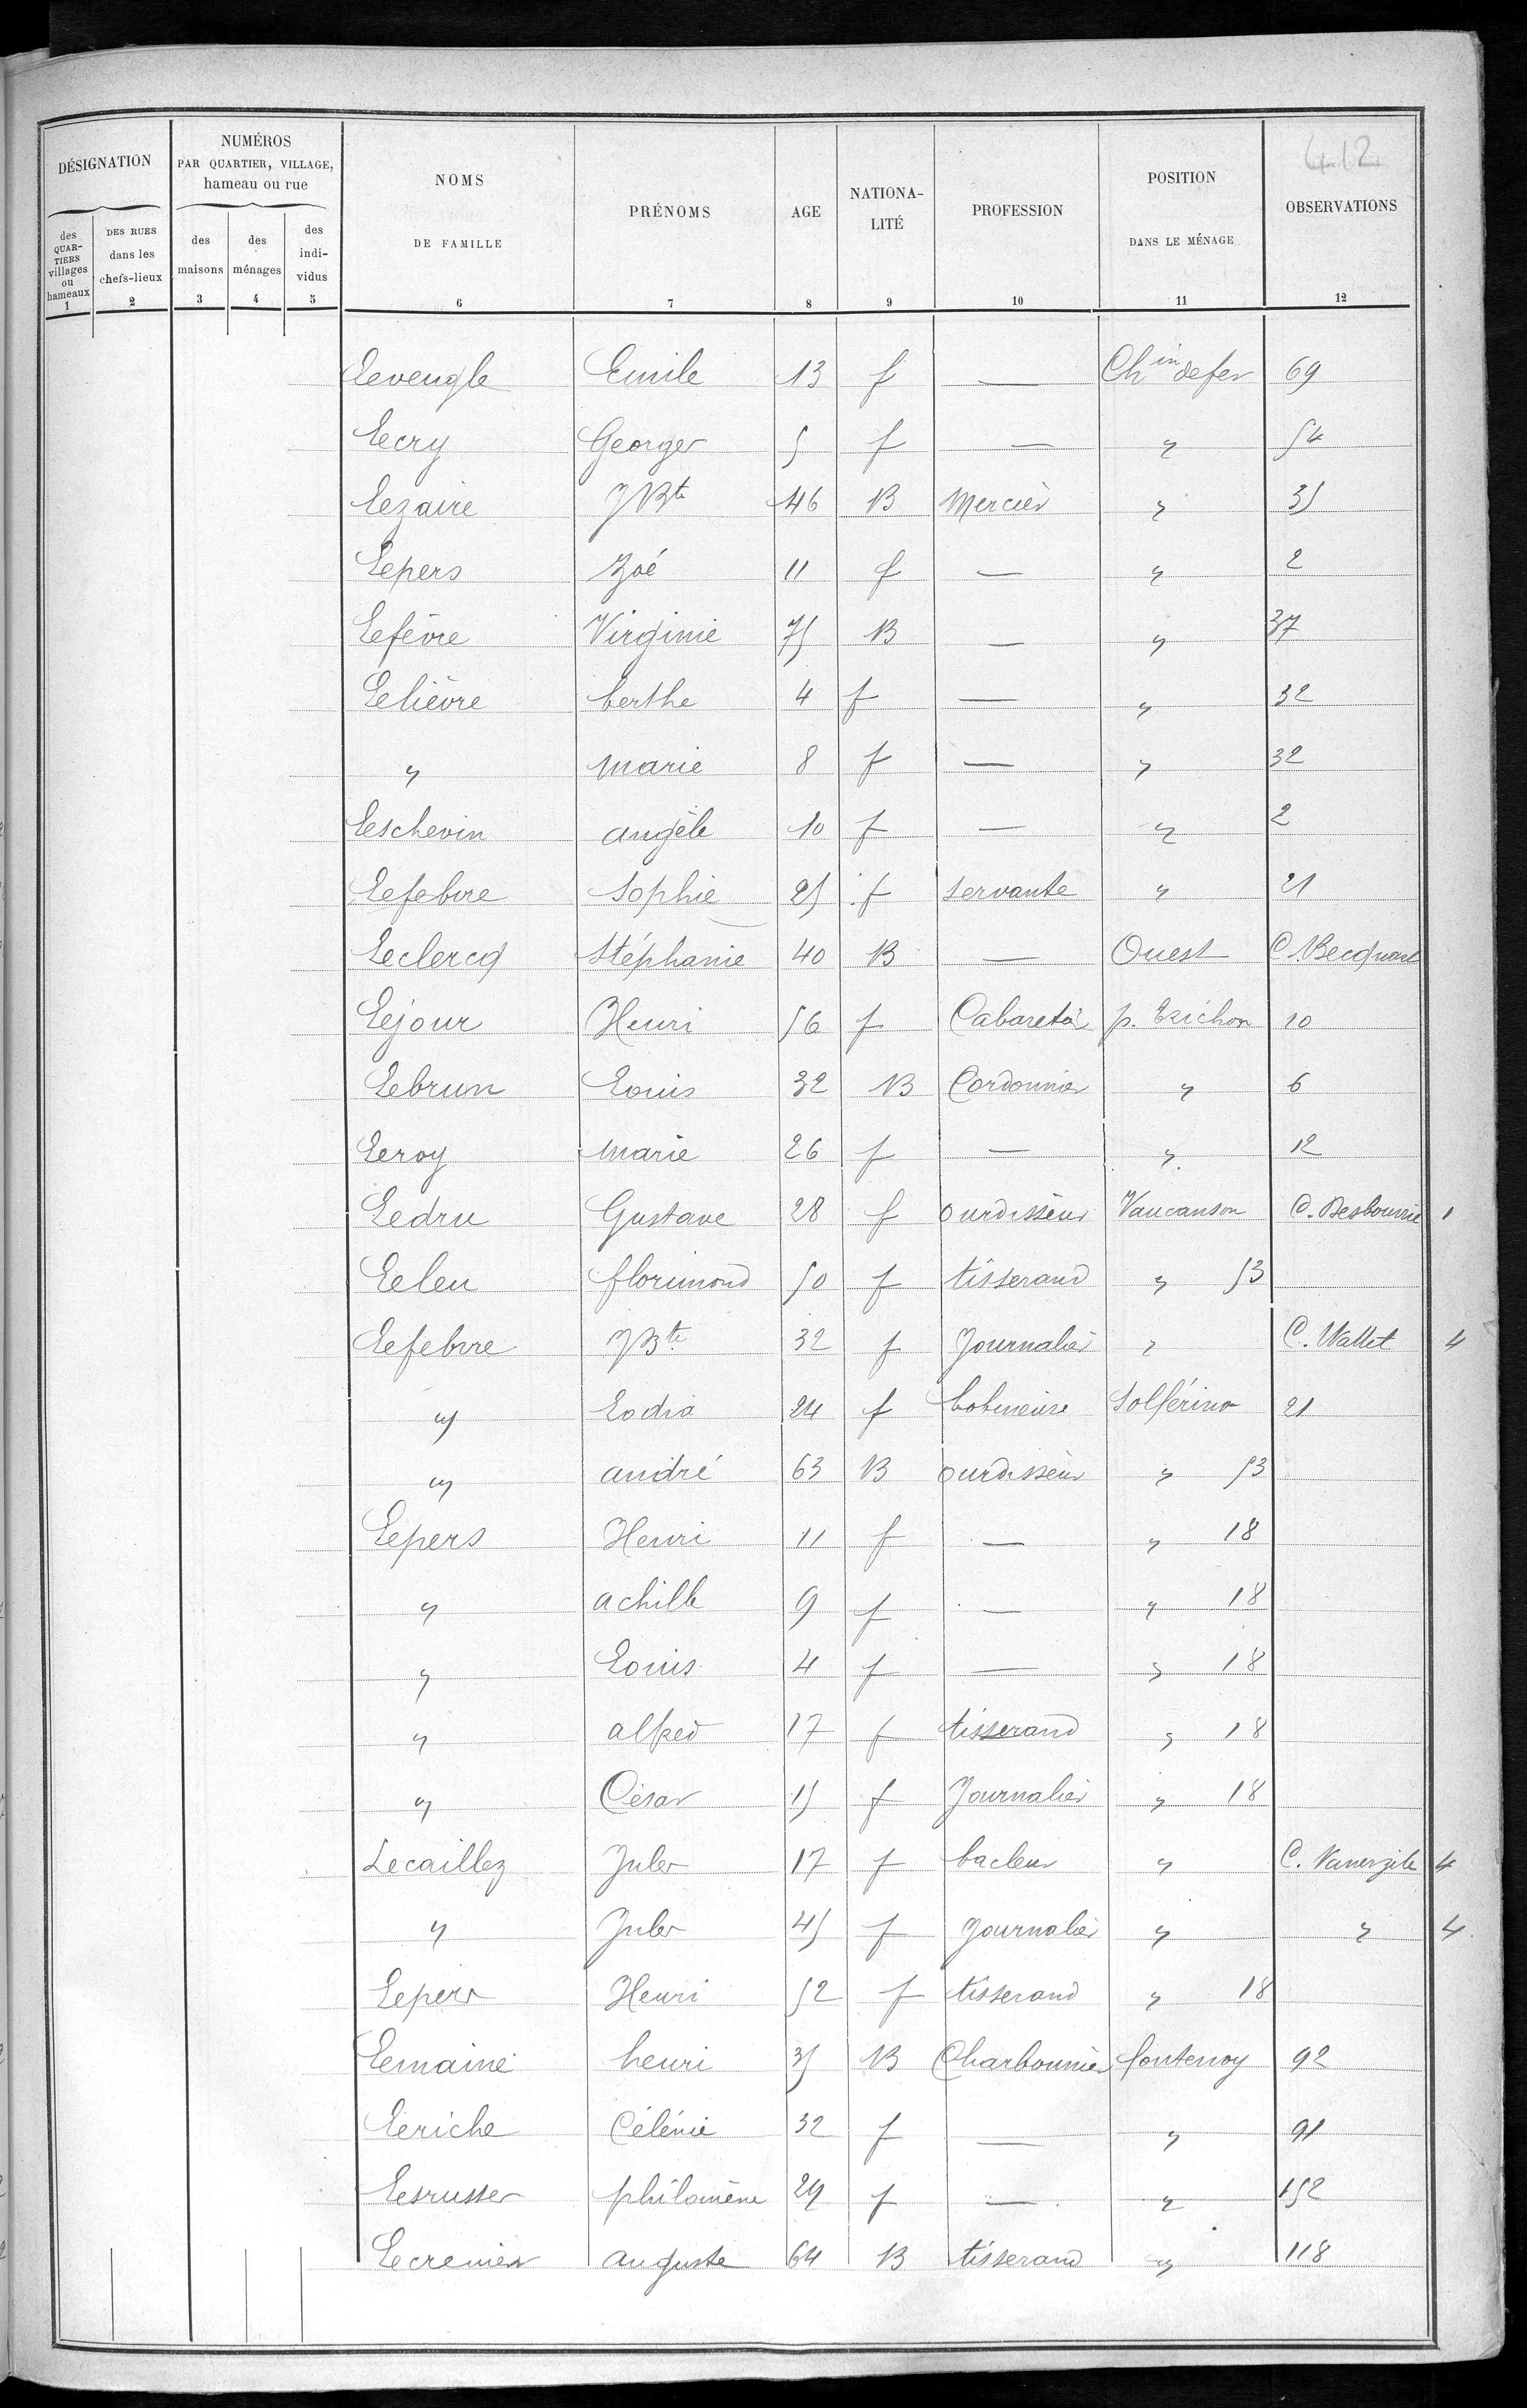 412
DÉSIGNATION
NUMÉROS
PAR QUARTIER, VILLAGE,
hameau ou rue
NOMS
DE FAMILLE
PRÉNOMS
AGE
NATIONA-
LITÉ
PROFESSION
POSITION
DANS LE MÉNAGE
OBSERVATIONS
des
QUAR-
TIERS
villages
ou
hameaux
DES RUES
dans les
chefs-lieux
des
maisons
des
ménages
des
indi-
vidus
1 2 3 4 5 6 7 8 9 10 11 12
Leveugle Emile 13 f — Ch in de fer 69
Lecry Georges 5 f — " 54
Lezaire JBte 46 B Mercier " 35
Lepers Zoé 11 f — " 2
Lefèvre Virginie 75 B — " 37
Lelièvre berthe 4 f — " 32
" marie 8 f — " 32
Leschevin angèle 10 f — " 2
Lefebvre Sophie 25 f servante " 21
Leclercq Stéphanie 40 B — Ouest C. Becquart
Lejour Henri 56 f Cabaretier p. 10
Lebrun Louis 32 B Cordonnier " 6
Leroy marie 26 f — " 12
Ledru Gustave 28 f ourdisseur Vaucanson C. 1
Leleu florimond 50 f tisserand " 53
Lefebvre JBte 32 f Journalier " C. Wattet 4
" 24 f bobineuse Solférino 21
" andré 63 B ourdisseur " 53
Lepers Henri 11 f — " 18
" achille 9 f — " 18
" Louis 4 f — " 18
" alfred 17 f tisserand " 18
" César 15 f Journalier " 18
Lecaillez Jules 17 f bacleur " C. 4
" Jules 45 f Journalier " " 4
Lepers Henri 52 f tisserand " 18
Lemaine henri 35 B Charbonnier fontenoy 92
Leriche Célénie 32 f — " 91
Lesrusser philomène 29 f — " 152
Lecrenier auguste 64 B tisserand " 118